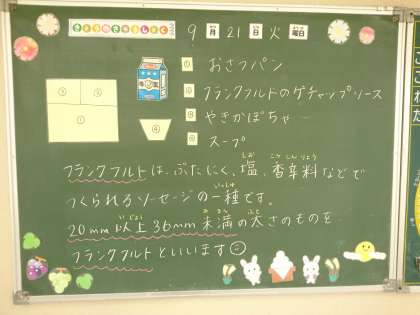 きょうのきゅうしょく
9月21日火曜日
① おさつパン
② フランクフルトのケチャップソース
③ やきかぼちゃ
④ スープ
③ ②
①
④
フランクフルトは、ぶたにく、塩、香辛料などで
しお こうしんりょう
つくられるソーセージの一種です。
いっしゅ
20mm以上36mm未満の太さのものを
いじょう みまん ふと
フランクフルトといいます